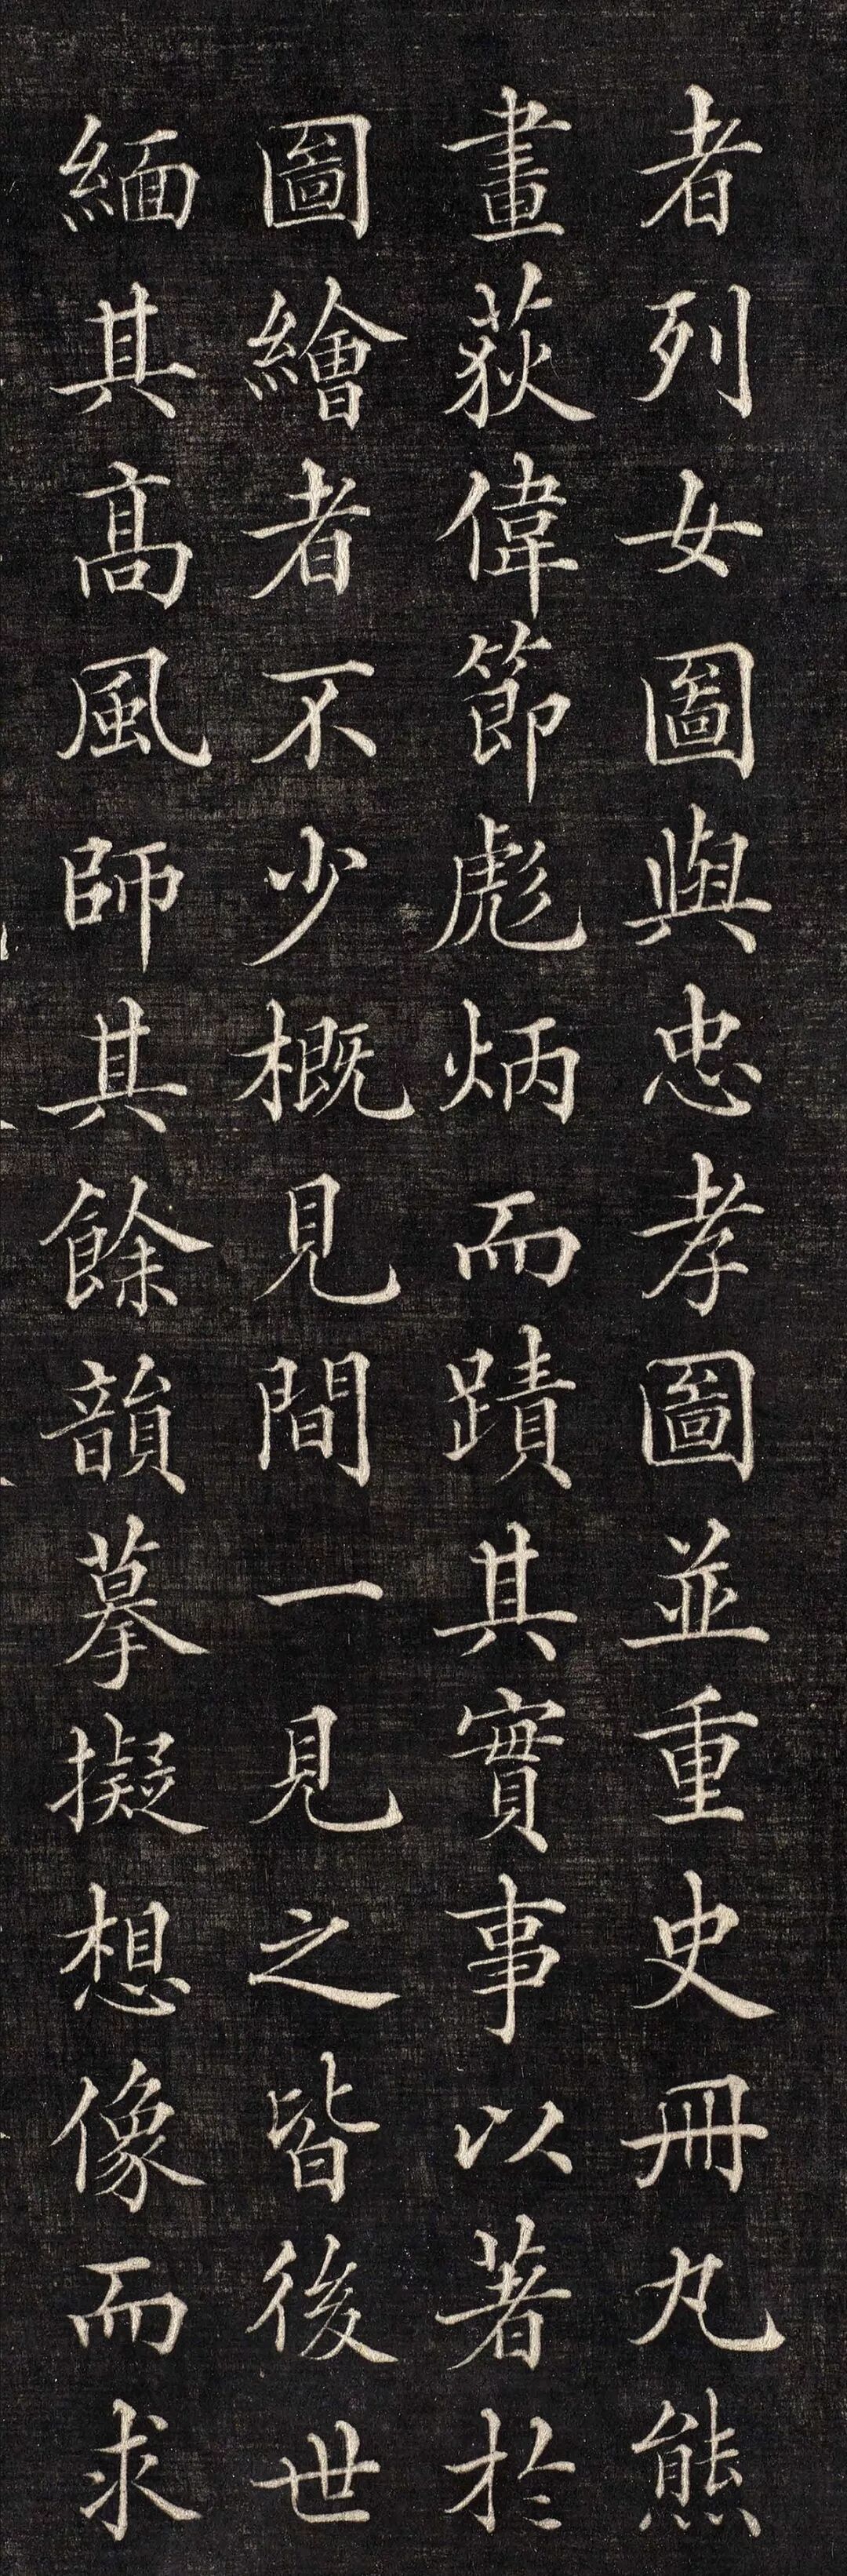 者列女圖與忠孝圖並重史冊丸熊
畫荻偉節彪炳而蹟其實事以著於
圖繪者不少概見間一見之皆後世
緬其高風師其餘韻摹擬想像而求